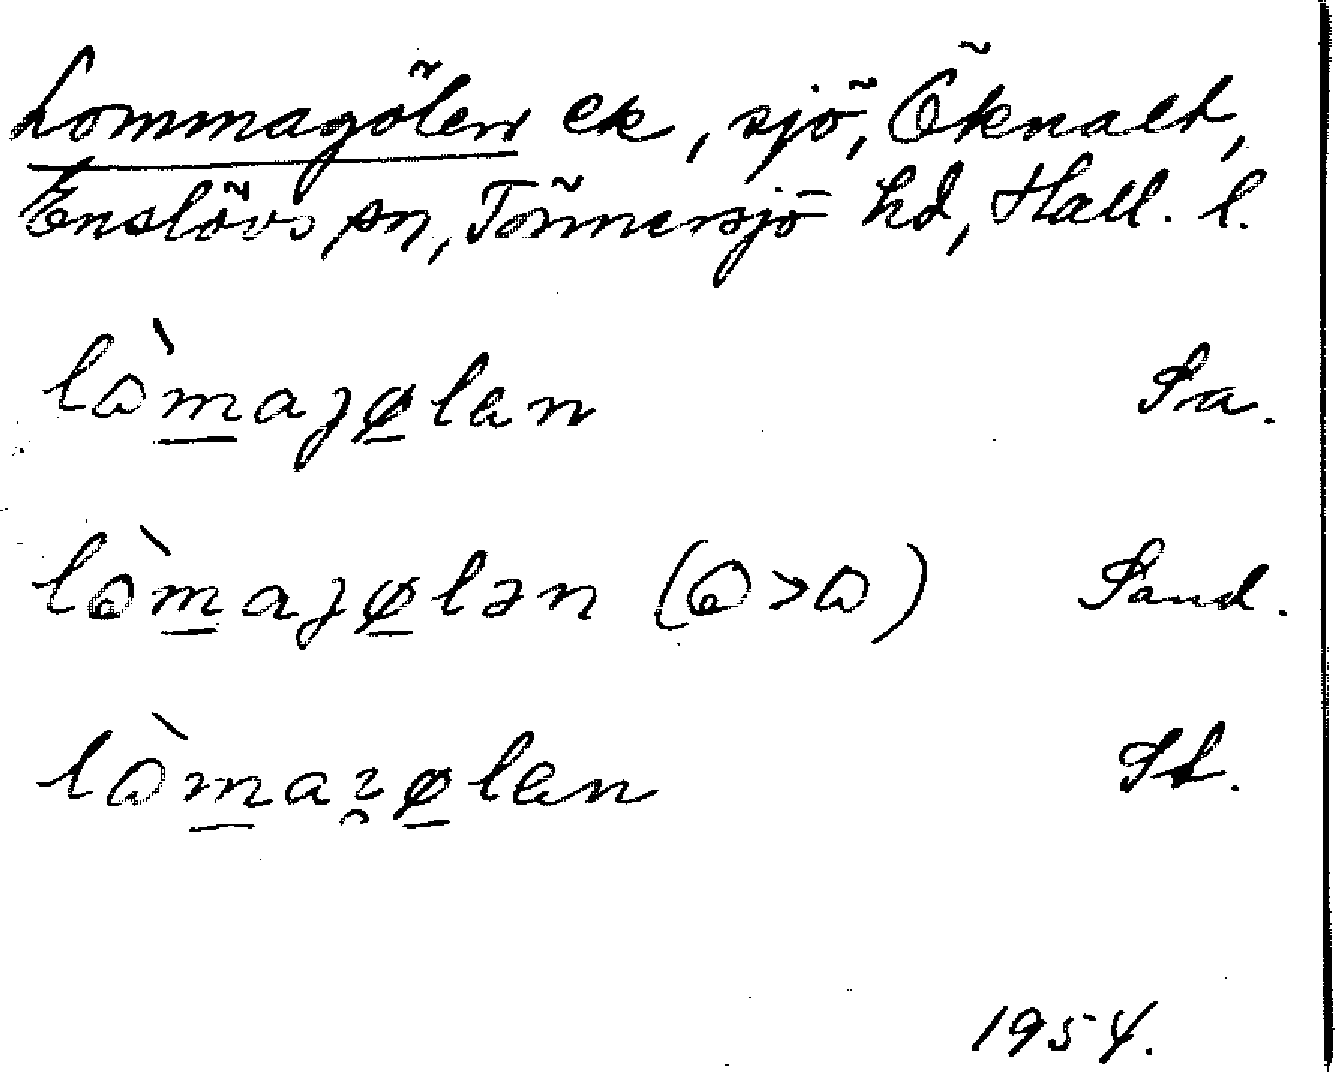 Lommagölen ek, sjö, Öknalt,
Enslövs sn, Tönnersjö hd, Hall. l.
lòmaȷø̠lan Sa.
lòmaȷø̠lən (ɷ>ɷ) Sand.
lòmaø̠len St.
1954.